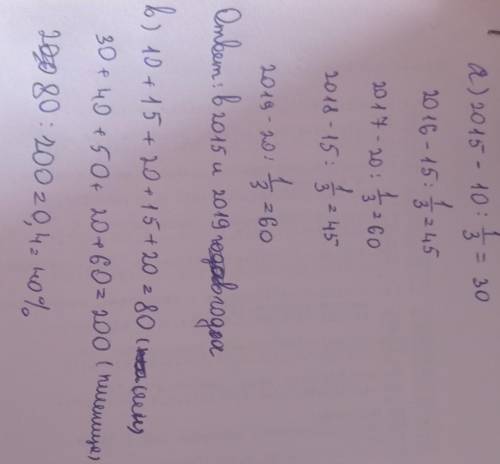 а) 2015 - 10 : 1/3 = 30
2016 - 15 : 1/3 = 45
2017 - 20 : 1/3 = 60
2018 - 15 : 1/3 = 45
2019 - 20 : 1/3 = 60
Ответ: в 2015 и 2019 года
в) 10 + 15 + 20 + 15 + 20 = 80 (
30 + 40 + 50 + 20 + 60 = 200 (пшеница)
80 : 200 = 0,4 = 40%